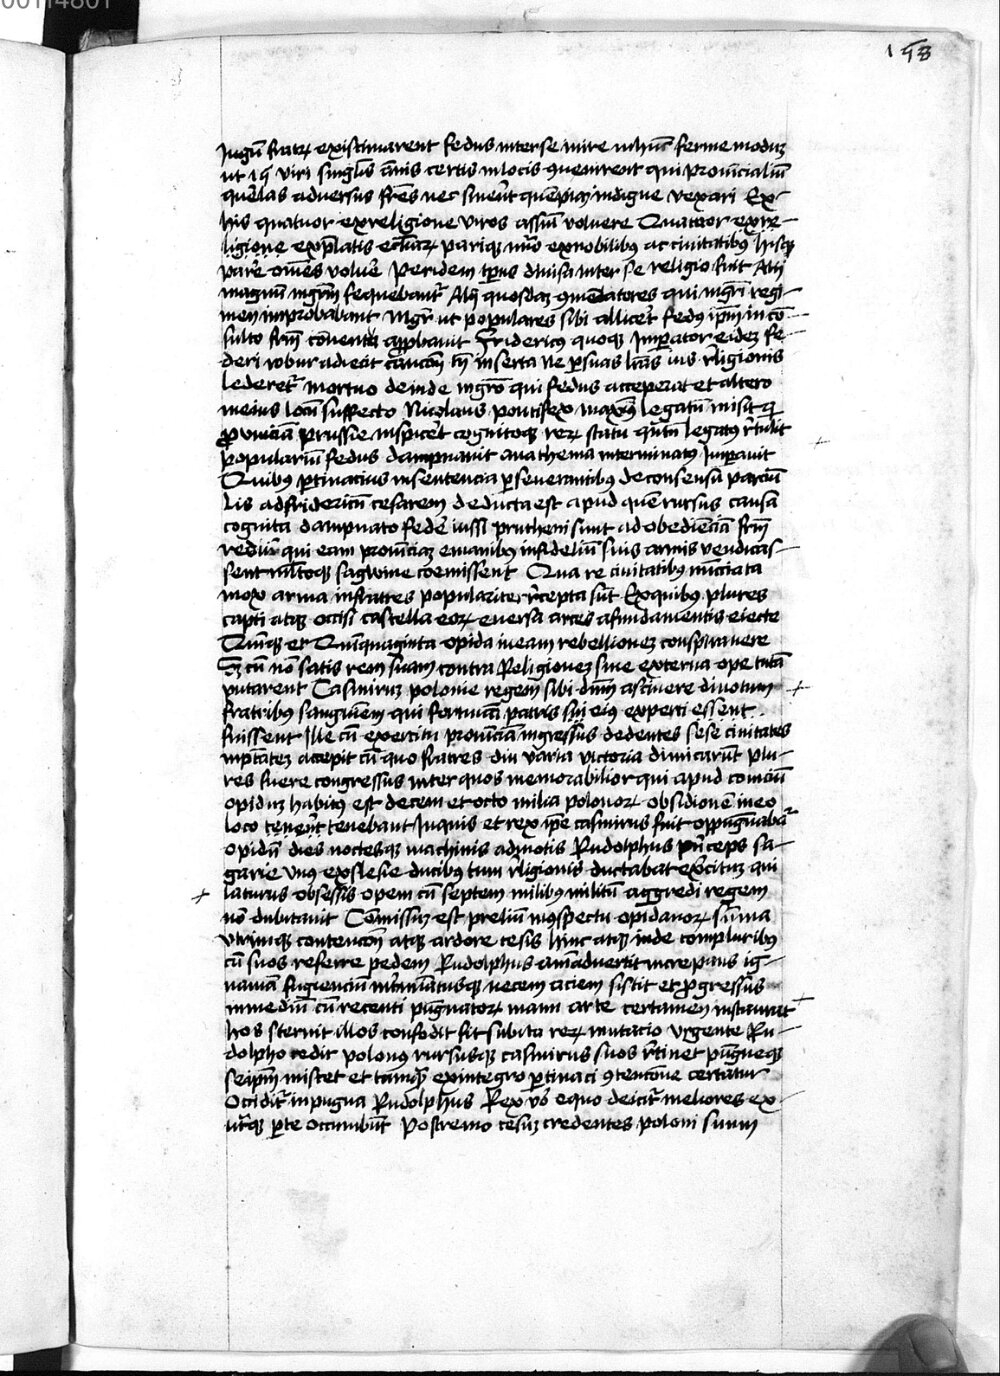 00114801
158
Jugu͂ fratrꝝ existimarent fedus inter se inire in hu͂c ferme modu͂
ut viri singul͂is a͂nis certis in locis ꝯuenirent qui prouincialiu͂
querelas aduersus fr͂es nec sinere͂t que͂piam indigne vexari Ex
his quatuor ex religione viros assu͂i voluere Quatuor ex re-
ligione ex p͂latis eccl͂iarꝝ pariqꝫ nu͂o ex nobilibꝰ ac ciuitatibꝰ hisqꝫ
parere om͂es voluere Per idem tp͂us diuisa inter se religio fuit Alij
magnu͂ mgr͂m sequebant͂ Alij quosdaꝫ ꝯme͂datores qui mgr͂i regi-
men improbabant Mgr͂ ut populares sibi alliceret fedꝰ ip͂m in co͂-
sulto fr͂m co͂uentu approbauit Fridericus quoqꝫ Imperator eidem fe-
deri robur adiecit cautio͂e tn͂ inserta ne per suas l͂ras ius religionis
lederet͂ Mortuo deinde mgr͂o qui fedus acceperat et altero
in eius locu͂ suffecto Nicolaus pontifex maximꝰ legatu͂ misit qui
prouincia͂ Prussie inspiceret cognitoqꝫ rerꝝ statu legatꝰ retulit
popularium fedus dampnauit anathema interminatꝰ Imperauit
Quibꝰ pertinacius in sentencia perseuerantibꝰ de consensu parciu͂
Lis ad fridericu͂ cesarem deducta est apud que͂ rursus causa
cognita dampnato federe iussi prutheni sunt ad obediencia͂ fr͂m
redire qui eam prouinciaꝫ e manibꝰ infideliu͂ suis armis vendicas-
sent multoqꝫ sagwine coemissent Qua re ciuitatibꝰ nu͂ciata
mox arma in fratres populariter recepta su͂t Ex quibus plures
capti atqꝫ occisi castella eorꝝ euersa arces a fundamentis eiecte
Quinqꝫ et Quinquaginta opida in eam rebellioneꝫ conspirauere
Sꝫ cu͂ non satis rem suam contra Religioneꝫ sine externa ope tuta͂
putarent Casimiruꝫ polonie regem sibi dn͂m asciuere diuotum
fratribꝰ sanguinem qui fortuna͂ patris sui eius experti essent
fuissent Ille cu͂ exercitu prouincia͂ ingressus dedentes sese ciuitates
in p͂tate͂ accepit cu͂ quo fratres diu varia victoria dimicaru͂t plu-
res fuere congressus inter quos memorabilior qui apud conicu͂
opiduꝫ habitꝰ est decem et octo milia polonorꝝ obsidione͂ in eo
loco tenere͂t tenebant in quis et rex ip͂e casimirus fuit oppugnaba͂t
opidu͂ dies noctesqꝫ machinis admotis Rudolphus princeps sa-
garie Vnus ex slesie ducibꝰ tum religionis ductabat exercituꝫ qui
laturus obsessis opem cu͂ septem milibꝰ militu͂ aggredi regem
no͂ dubitauit Co͂missuꝫ est preliu͂ in ꝯspectu opidanorꝝ summa
vtrimqꝫ contencio͂e atqꝫ ardore cesis hinc atqꝫ inde compluribꝰ
cu͂ suos referre pedem Rudolphus animaduertit increpans ig-
nauiam fugienciu͂ minatusqꝫ necem aciem sistit et progressus
in mediu͂ cu͂ recenti pugnatorꝝ manu arte certamen instaurat
hos sternit illos confodit fit subita rerꝝ mutacio vrgente Ru-
dolpho cedit polonꝰ rursusqꝫ casimirus suos retinet pugneqꝫ
seip͂m miscet et tamqꝫ ex integro pertinaci ꝯtencione certatur
Occidit͂ in pugna Rudolphus Rex vo͂ equo deicit͂ meliores ex
vtraqꝫ parte occumbu͂t Postremo cesuꝫ credentes poloni suum